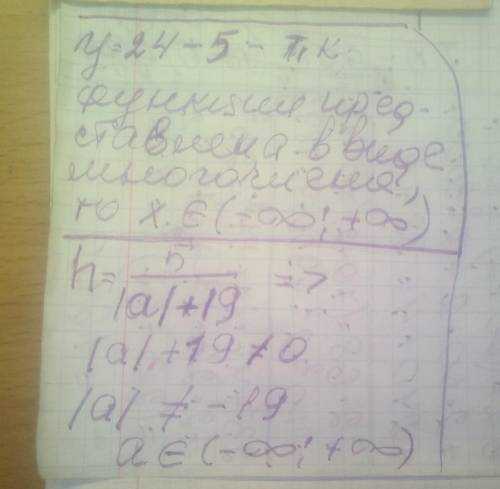 y=24-5- т.к.
функция пред-
ставлена в виде
многочлена,
то x ∈ (-∞; +∞)
h = 5 / |a|+19 =>
|a|+19≠0
|a| ≠ -19
a ∈ (-∞; +∞)